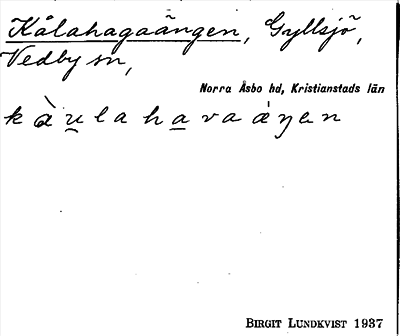 Kålahagaängen, Gyllsjö,
Vedby sn,
Norra Åsbo hd, Kristianstads län
kàu̲laha̲vaáŋen
BIRGIT LUNDKVIST 1937